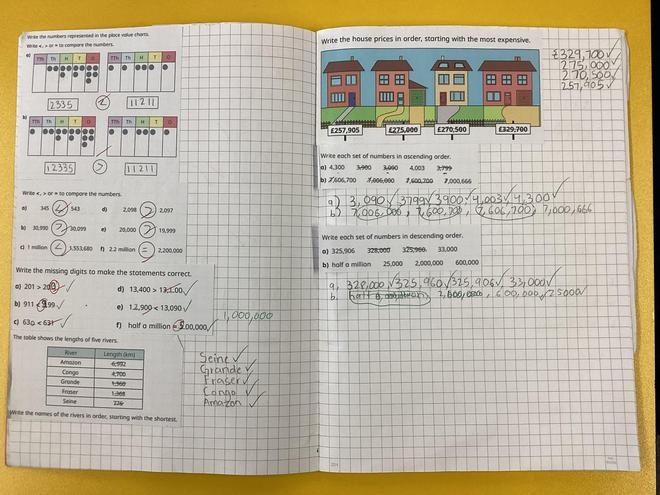 Write the numbers represented in the place value charts.
Write <, > or = to compare the numbers.
a)
TTh Th H T O
TTh Th H T O
2335 < 11211
b)
TTh Th H T O
TTh Th H T O
12335 > 11211
Write <, > or = to compare the numbers.
a) 345 543 d) 2,098 > 2,097
b) 30,990 30,099 e) 20,000 > 19,999
c) 1 million < 1,553,680 f) 2.2 million = 2,200,000
Write the missing digits to make the statements correct.
a) 201 > 20 d) 13,400 > 13,100
b) 911 < 99 e) 12,900 < 13,090
c) 630 < 631 f) half a million = 500,000
1,000,000
The table shows the lengths of five rivers.
River Length (km)
Amazon 6,992
Congo 4,700
Grande 1,360
Fraser 1,368
Seine 776
Write the names of the rivers in order, starting with the shortest.
Seine
Grande
Fraser
Congo
Amazon
Write the house prices in order, starting with the most expensive.
£257,905 £275,000 £270,500 £329,700
£329,700
275,000
270,500
257,905
Write each set of numbers in ascending order.
a) 4,300 3,900 3,090 4,003 3,799
b) 7,606,700 7,006,000 7,600,700 7,000,666
a) 3,090 3799 3900 4,003 4,300
b) 7,006,000, 7,600,700, 7,606,700, 7,000,666
Write each set of numbers in descending order.
a) 325,906 328,000 325,960 33,000
b) half a million 25,000 2,000,000 600,000
a, 328,000 325,960 325,906, 33,000
b. half a million 600,000 25000